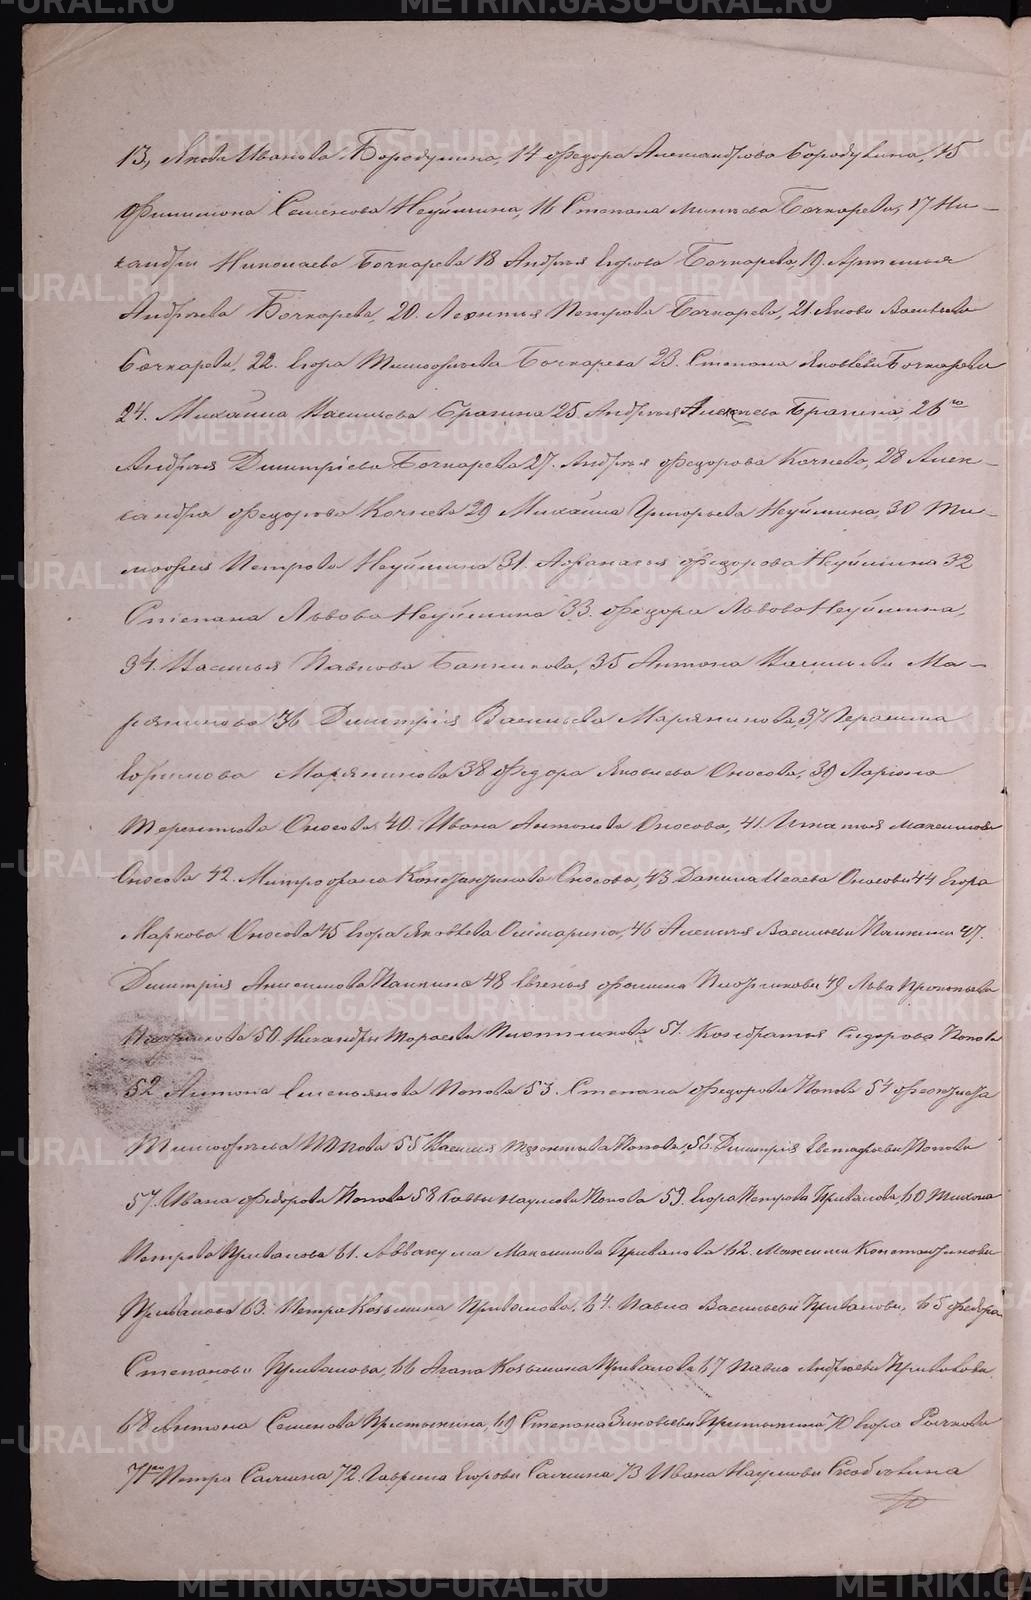 13, Якова Иванова Бородулина, 14 Федора Александрова Бородулина, 15
Филимона Семенова Неуймина, 16 Степана Бочкарева, 17 Ни-
кандры Николаева Бочкарева 18 Андрея Егорова Бочкарева, 19. Артемья
Андреева Бочкарева, 20. Леонтья Петрова Бочкарева, 21. Якова Васильева
Бочкарева, 22. Егора Тимофеева Бочкарева 23. Степана Яковлева Бочкарева
24. Михаила Васильева Брагина 25. Андрея Алексеева Брагина, 26го
Андрея Димитріева Бочкарева 27. Андрея Федорова Кочнева, 28 Алек-
сандра Федорова Кочнева 29 Михаила Григорьева Неуймина, 30 Ти-
мофея Петрова Неуймина 31. Афанасья Федорова Неуймина 32
Степана Львова Неуймина 33. Федора Львова Неуймина,
34. Василья Павлова Банникова, 35 Антона Васильева Ма-
рянинова 36 Димитрія Васильева Марянинова, 37 Герасима
Ефимова Марянинова 38 Федора Яковлева Оносова, 39 Ларіона
Терентьева Оносова 40. Ивана Антонова Оносова, 41. Игнатья Максимова
Оносова 42. Митрофана Константинова Оносова, 43 Данила Исаева Оносова 44 Егора
Маркова Оносова 45 Егора Яковлева 46 Алексея Васильева Палкина 47.
Димитрія Анисимова Палкина 48 Евгенья Фомина 49 Льва Прокопьева
50. Никандры Тарасова Плотникова 51. Кондратья Сидорова Попова
52 Антона Емельянова Попова 53. Степана Федорова Попова 54 Феоктиста
Тимофеева Попова 55 Василья Терентьева Попова, 56 Димитрія Евстафьева Попова
57. Ивана Федорова Попова 58 Саввы Наумова Попова 59. Егора Петрова Привалова, 60 Тихона
Петрова Привалова 61. Аввакума Максимова Привалова 62. Максима Константинова
Привалова 63. Петра Козьмина Привалова, 64. Павла Васильева Привалова, 65 Федора
Степанова Привалова, 66 Агапа Козьмина Привалова 67 Павла Андреева Привалова
68 Антона Семенова 69 Степана Зиновьева 70 Егора Рычкова
71го Петра Салмина 72. Гаврила Егорова Салмина 73 Ивана Наумова Скобликина
METRIKI.GASO-URAL.RU